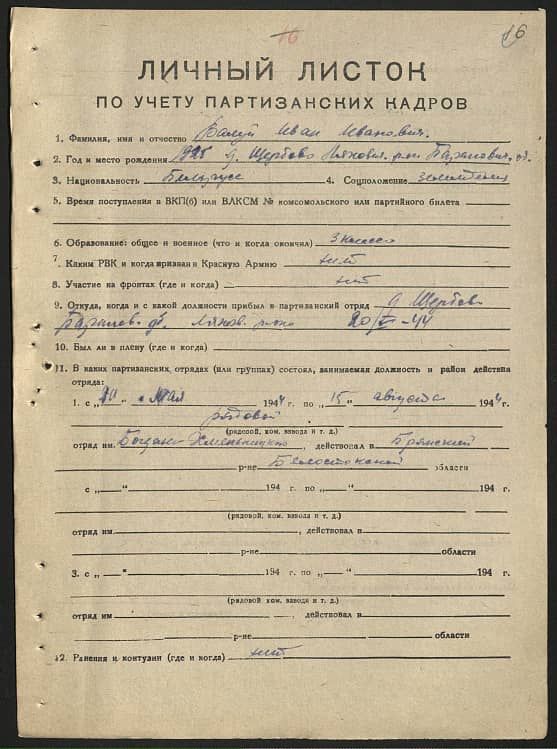 16
16
ЛИЧНЫЙ ЛИСТОК
ПО УЧЕТУ ПАРТИЗАНСКИХ КАДРОВ
1. Фамилия, имя и отчество Валуй Иван Иванович.
2. Год и место рождения 1925 д. Щербово Ляхович. р-на Баранович. о.
3. Национальность Белорусс 4. Соцположение
5. Время поступления в ВКП(б) или ВЛКСМ № комсомольского или партийного билета
6. Образование: общее и военное (что и когда окончил) 3 класса
7. Каким РВК и когда призван в Красную Армию нет
8. Участие на фронтах (где и когда) нет
9. Откуда, когда и с какой должности прибыл в партизанский отряд д. Щербов
Баранов. Ляхов. р-на 20/V-44
10. Был ли в плену (где и когда)
11. В каких партизанских отрядах (или группах) состоял, занимаемая должность и район действия
отряда:
1. с „20“ мая 1944 г. по „15“ августа 1944 г.
рядовой
(рядовой, ком. взвода и т. д.)
отряд им. Богдана Хмельницкого, действовал в Брянский
р-не Белостокской области
с „ “ 194 г. по „ “ 194 г.
(рядовой, ком. взвода и т. д.)
отряд им , действовал в
р-не области
3. с „ “ 194 г. по „ “ 194 г.
(рядовой ком. взвода и т. д.)
отряд им , действовал в
р-не области
12. Ранения и контузии (где и когда) нет